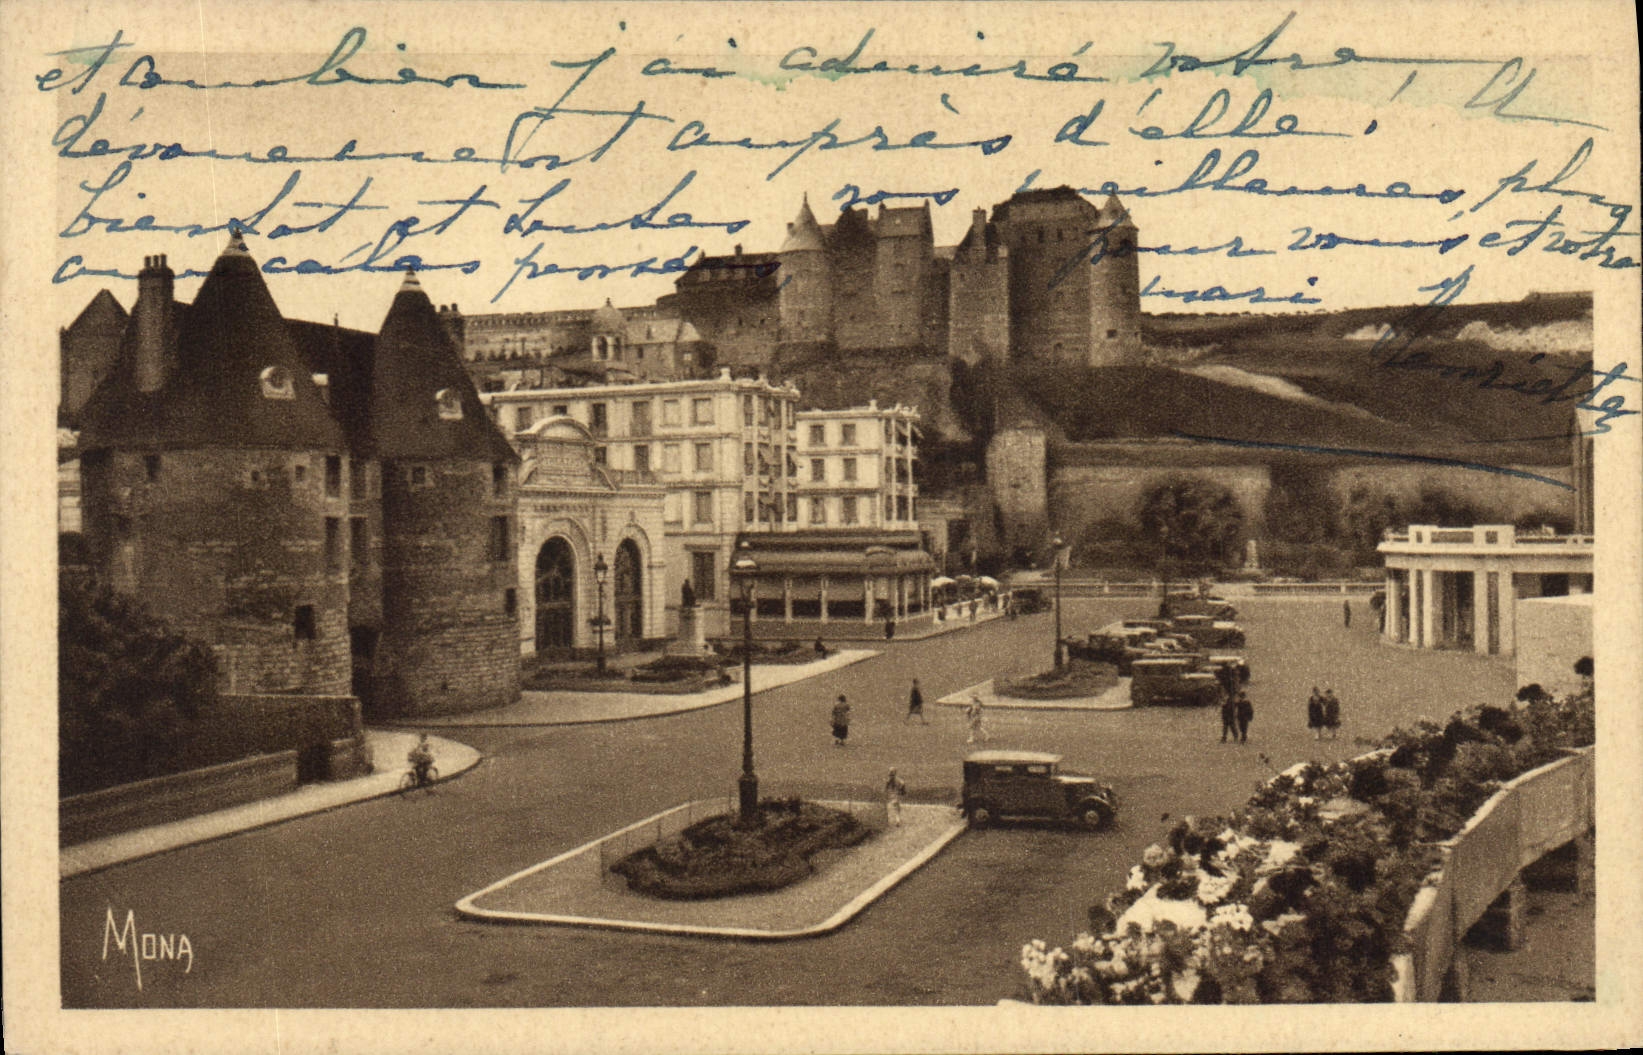 et combien j'ai admiré votre
dévouement auprès d'elle ! A
bientôt et toutes nos meilleures plus
amicales pensées, pour vous et votre
mari Henriette
MONA